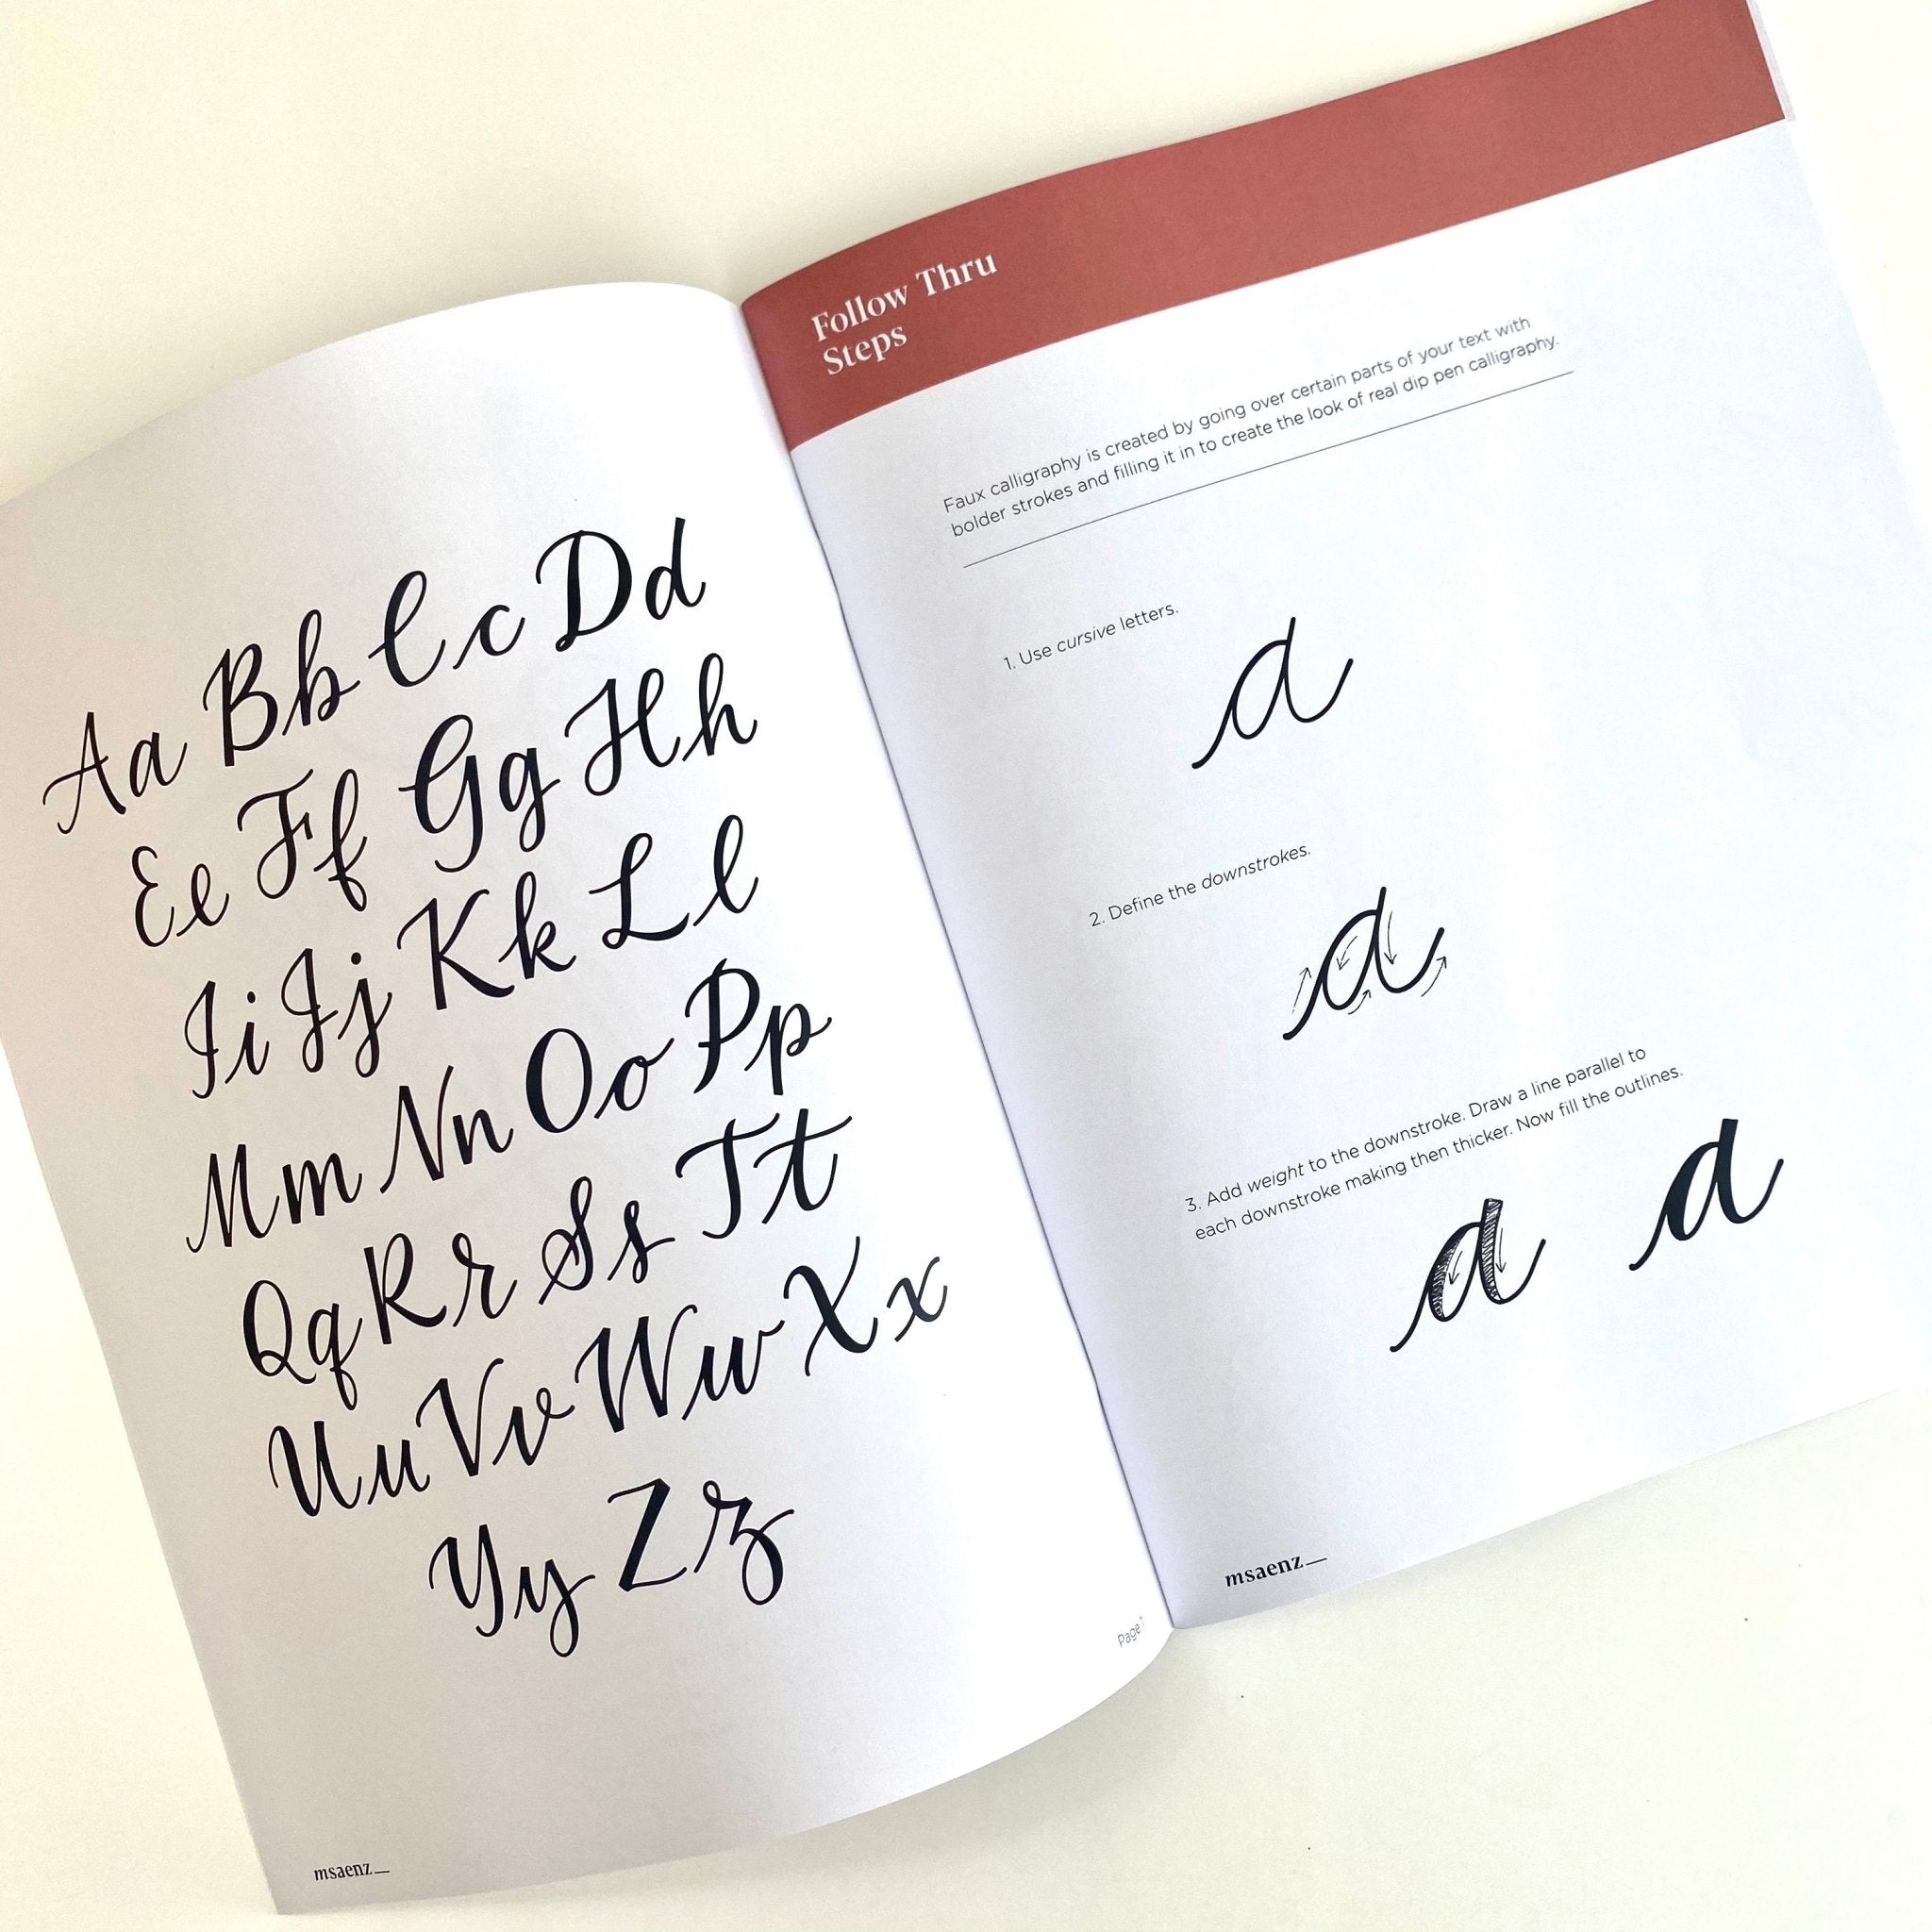 Aa Bb Cc Dd
Ee Ff Gg Hh
Ii Jj Kk Ll
Mm Nn Oo Pp
Qq Rr Ss Tt
Uu Vv Ww Xx
Yy Zz
msaenz_
Page 1
Follow Thru
Steps
Faux calligraphy is created by going over certain parts of your text with
bolder strokes and filling it in to create the look of real dip pen calligraphy.
1. Use cursive letters.
a
2. Define the downstrokes.
a
3. Add weight to the downstroke. Draw a line parallel to
each downstroke making then thicker. Now fill the outlines.
a a
msaenz_